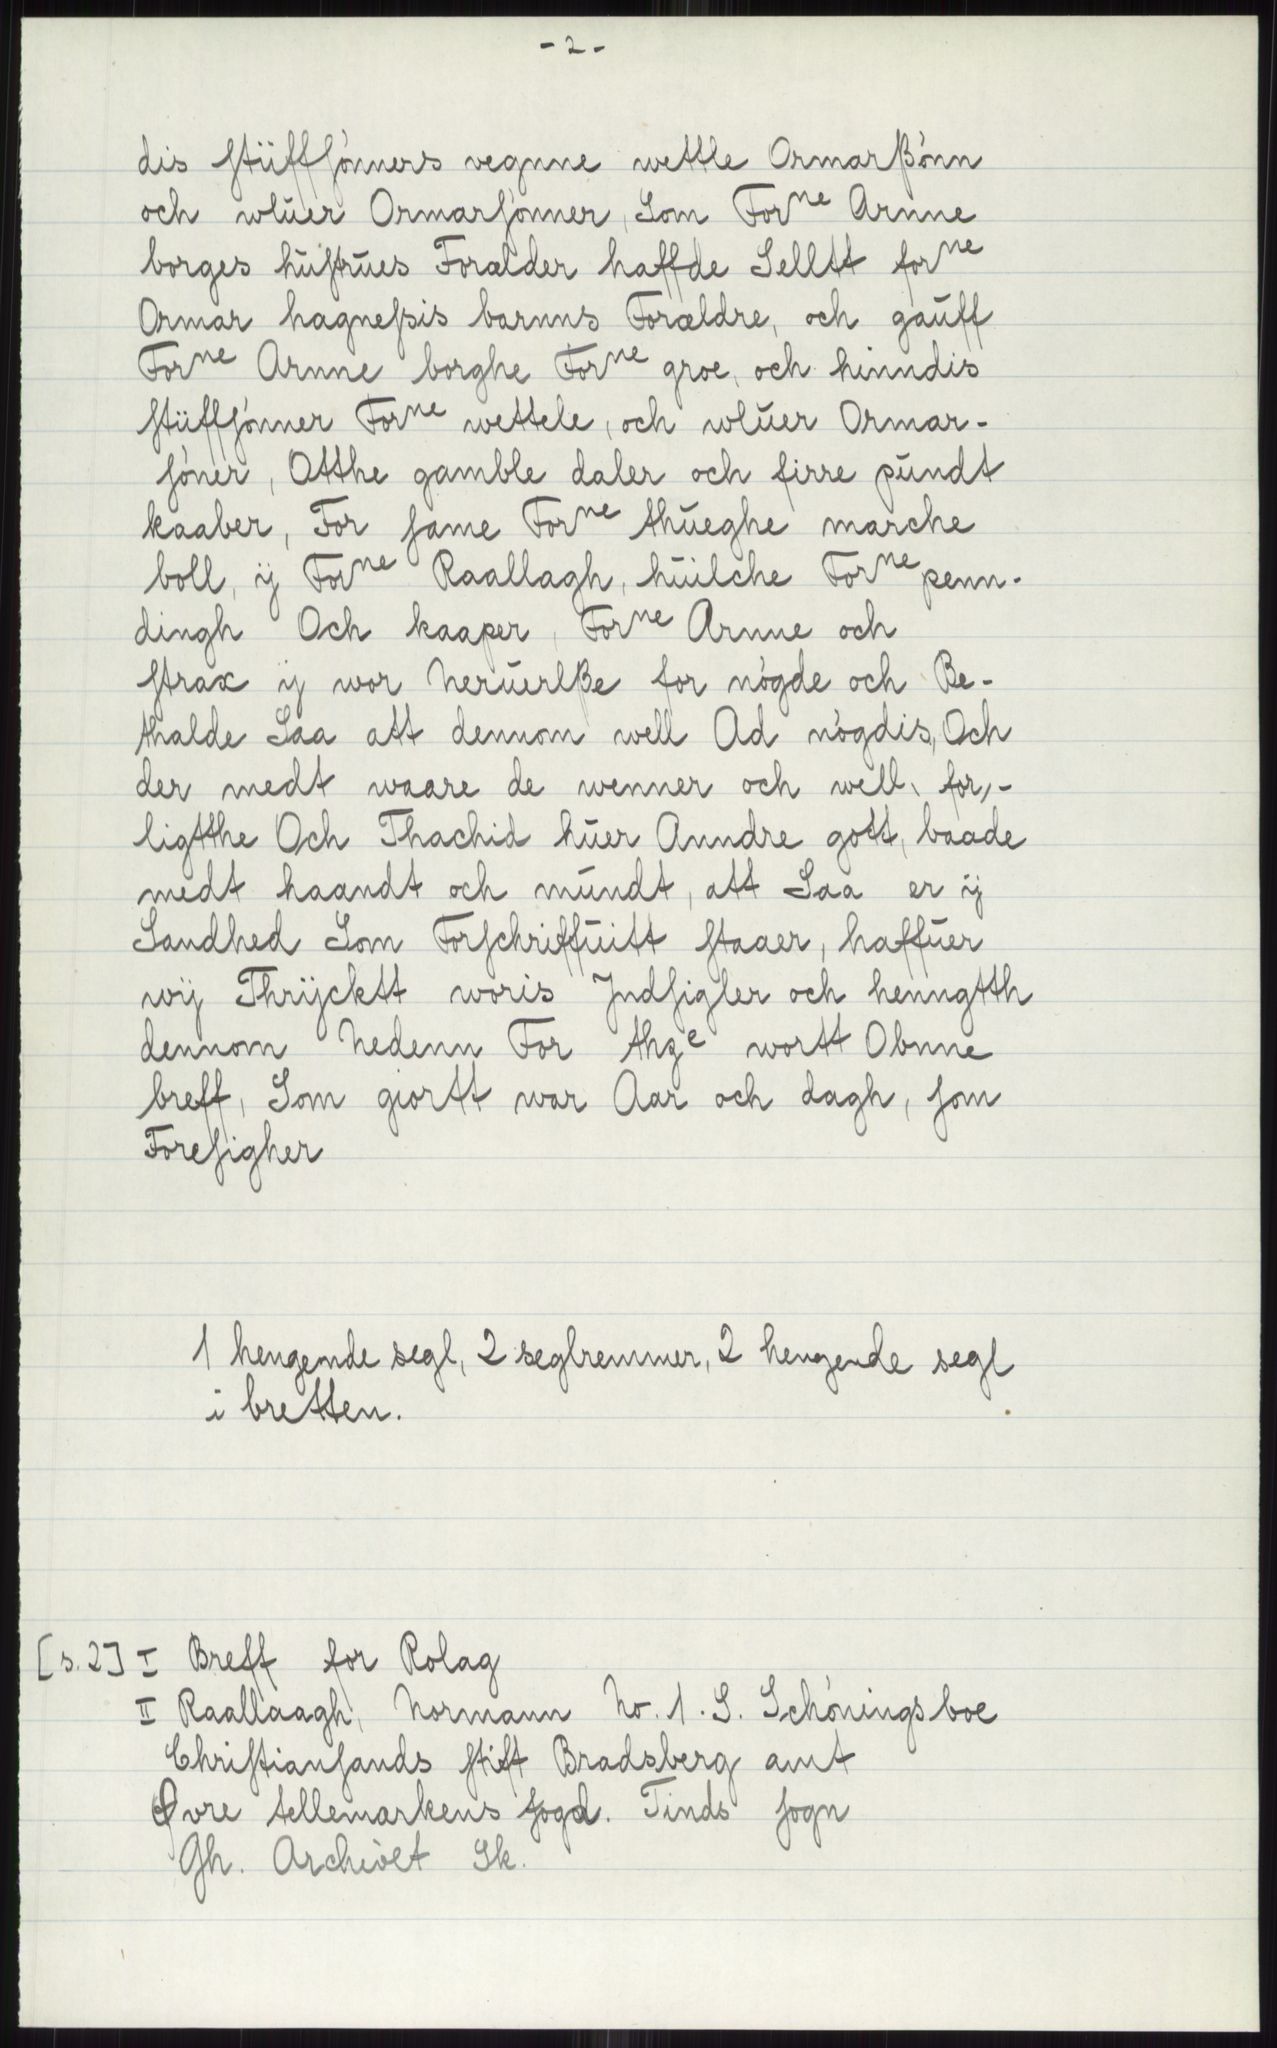 - 2 -
dis ſtüffſónners vegnne wettle Ormarßónn
och wlŭer Ormarſónner, Som Forⁿᵉ Arnne
borges hŭſtrŭes Forælder haffde Selltt forⁿᵉ
Ormar hagneſsis barnns Forældre, och gaŭff
Forⁿᵉ Arnne borghe Forⁿᵉ groe, och hinndis
ſtüffſónner Forⁿᵉ wettele, och wlŭer Ormar-
ſóner, Otthe gamble daler och firre pŭndt
kaaber, For ſame Forⁿᵉ thŭeghe marche
boll, ÿ Forⁿᵉ Raallagh, hŭilche Forⁿᵉ penn-
dingh Och kaaper, Forⁿᵉ Arnne och
ſtrax ÿ wor Nerŭerlße for nógde och Be-
thalde Saa att dennom well Ad nógdis, Och
der medt waare de wenner och well, for,-
ligtthe Och Thachid hŭer Anndre gott, baade
medt haandt och mŭndt, att Saa er ÿ
Sandhed Som Forſchriffŭitt ſtaaer, haffŭer
wÿ Thrÿcktt woris Jndſigler och henngtth
dennom Nedenn For thzᵉ wortt Obnne
breff, Som giortt war Aar och dagh, ſom
Foreſigher
1 hengende segl, 2 seglremmer, 2 hengende segl
i bretten.
[s. 2] I Breff for Rolag
II Raallaagh, Normann No. 1. S. Schóningsboe
Chriſtianſands ſtift Bradsberg amt
Øvre tellemarkens fogd. Tinds ſogn
Gh. Archivet Sk.